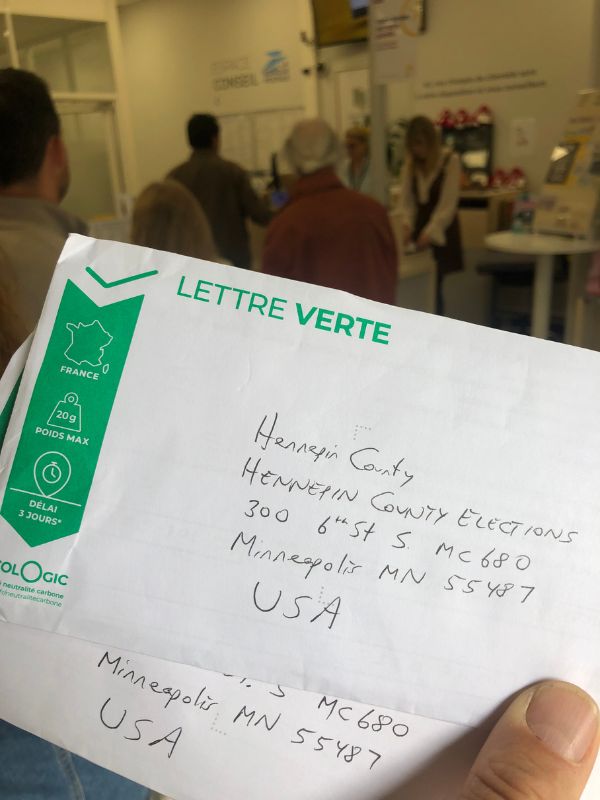 ESPACE
CONSEIL
LETTRE VERTE
FRANCE
20g
POIDS MAX
DÉLAI
3 JOURS*
Hennepin County
HENNEPIN COUNTY ELECTIONS
300 6th St S. MC 680
Minneapolis MN 55487
USA
COLOGIC
neutralité carbone
St. S MC 680
Minneapolis MN 55487
USA